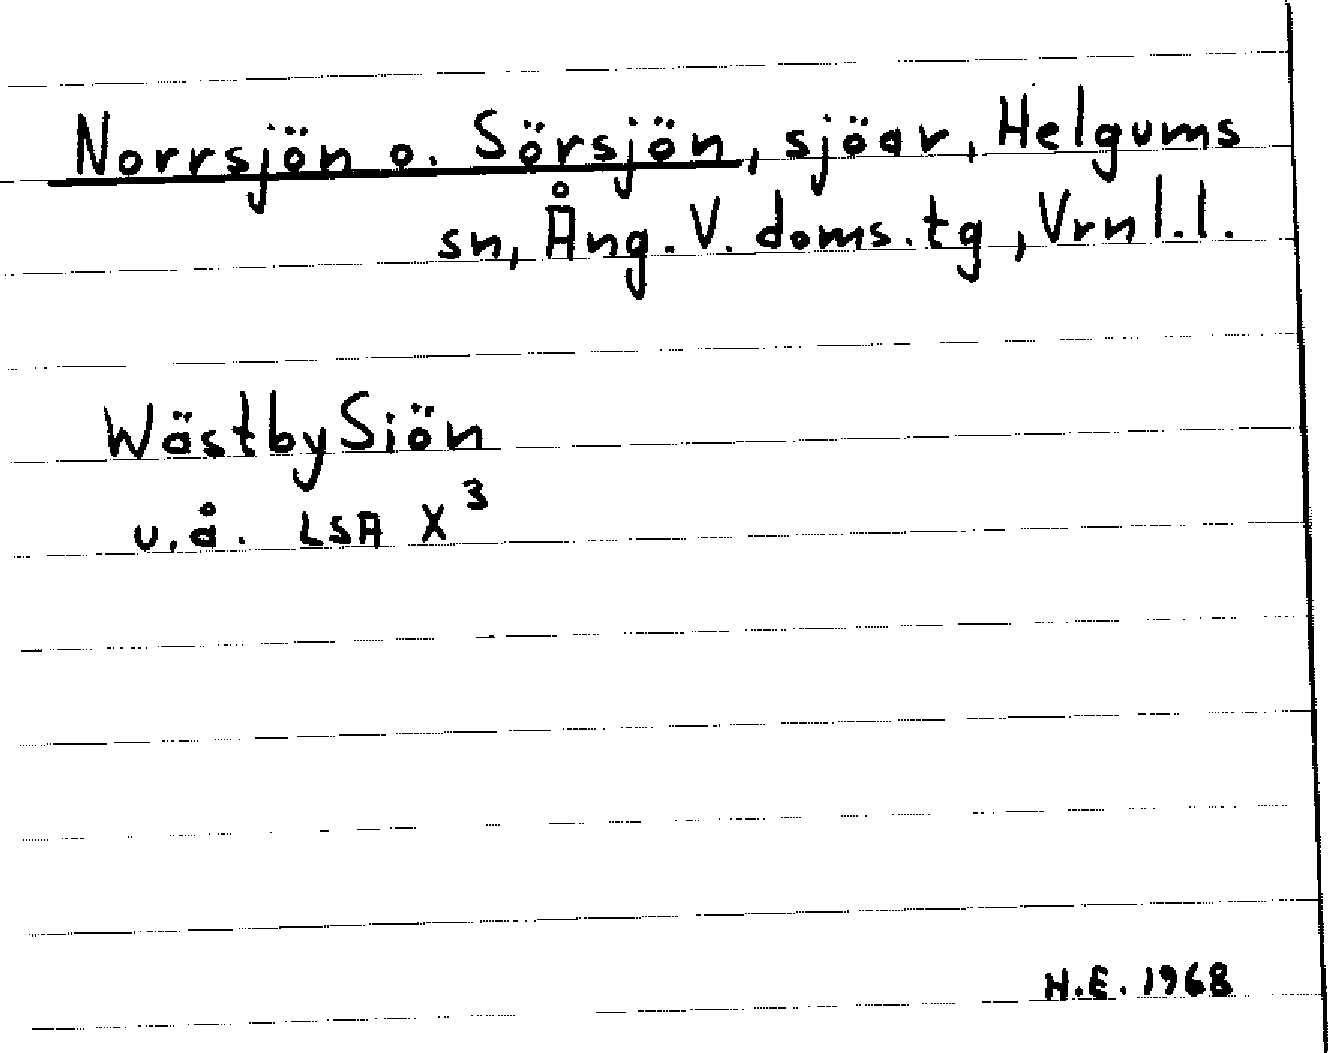 Norrsjön o. Sörsjön, sjöar, Helgums
sn, Ång. V. doms.tg, Vrnl.l.
WästbySiön
u.å. LSA X³
H.E. 1968